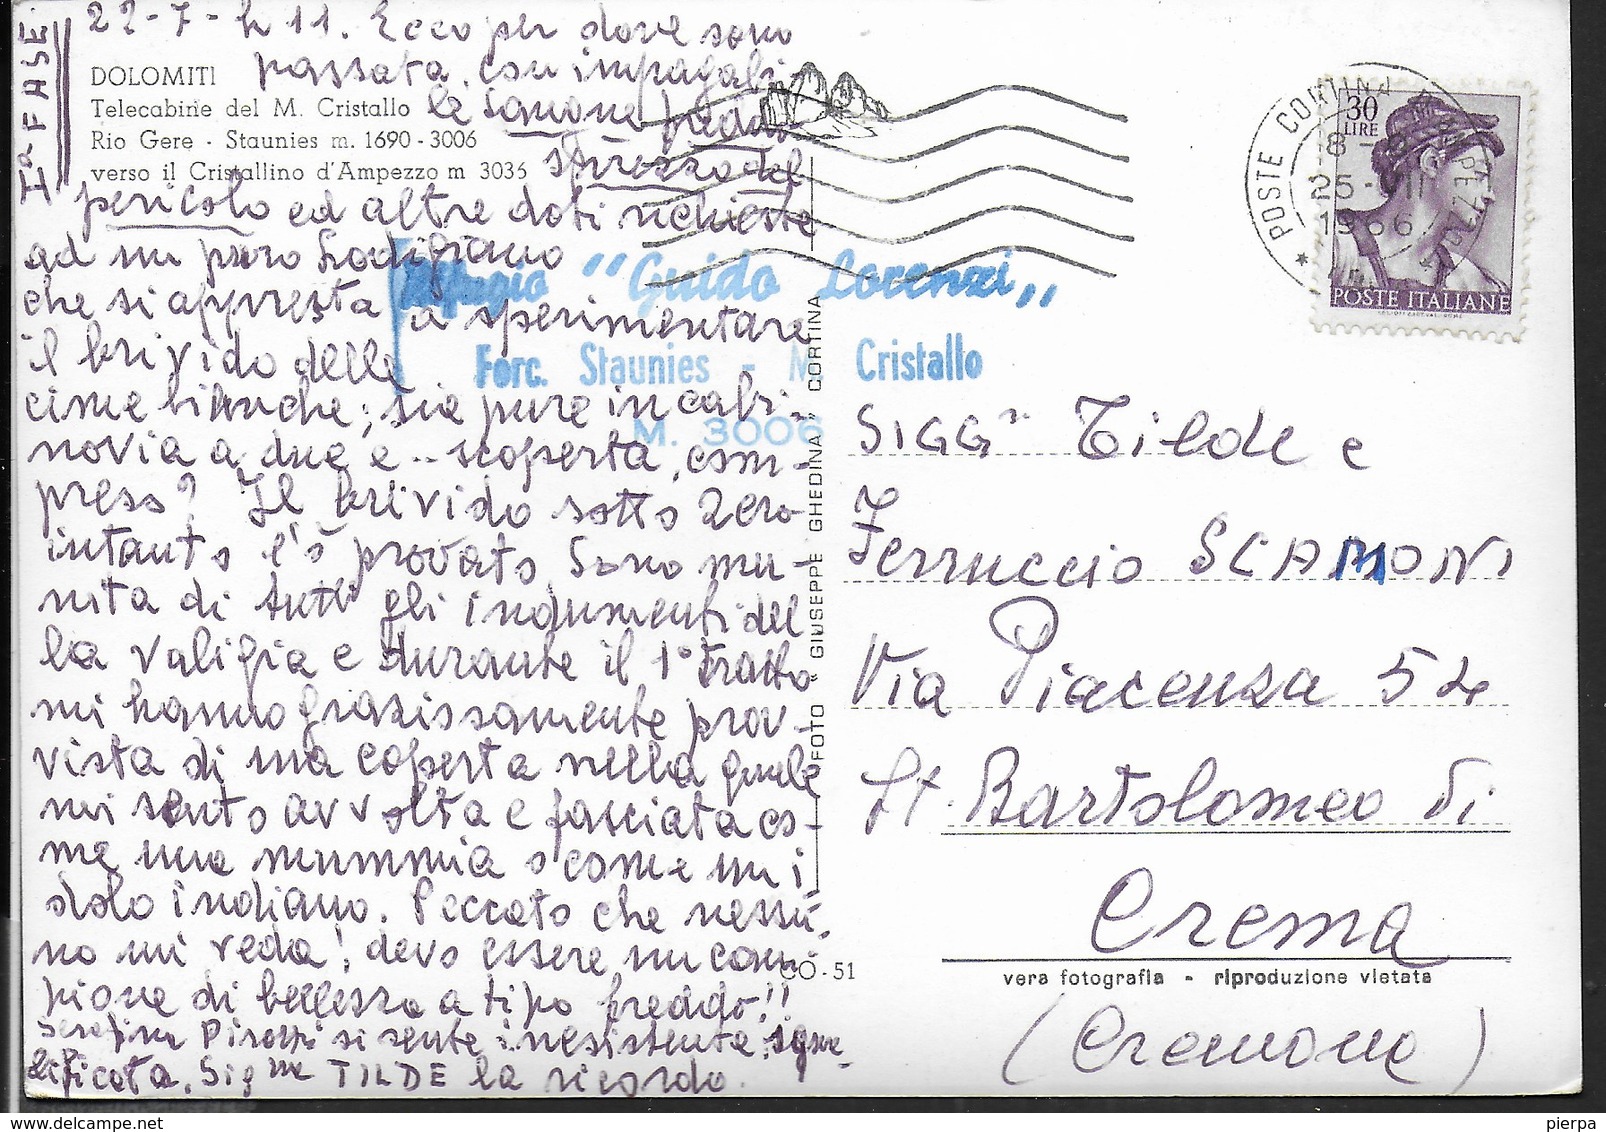 Iª FASE:
22-7-h 11. Ecco per dove sono
passata, con impagabi-
le
DOLOMITI
Telecabine del M. Cristallo
Rio Gere - Staunies m. 1690-3006
verso il Cristallino d'Ampezzo m 3036
sprezzo del
pericolo ed altre doti richieste
ad un puro
che si appresta a sperimentare
il brivido delle
cime bianche; sia pure in cabi-
novia a due e.. scoperta, com-
preso? Il brivido sotto zero
intanto l'ò provato. Sono mu-
nita di tutti gli indumenti del
la valigia e durante il 1° tratto
mi hanno graziosissamente prov-
vista di una coperta nella quale
mi sento avvolta e fasciata co-
me una mummia o come un i
dolo indiano. Peccato che nessu-
no mi veda! devo essere un cam-
pione di bellezza a tipo freddo!!
si sente inesistente,
Sig.na TILDE la ricordo.
Rifugio "Guido Lorenzi"
Forc. Staunies - M. Cristallo
M. 3006
FOTO "GIUSEPPE GHEDINA" CORTINA
CO-51
* POSTE CORTINA
8-
25-VII
1966
30
LIRE
POSTE ITALIANE
SIGG.ri Tilde e
Ferruccio SCAMONI
Via Piacenza 54
St. Bartolomeo di
Crema
vera fotografia - riproduzione vietata
(Cremona)
delcampe.net
pierpa